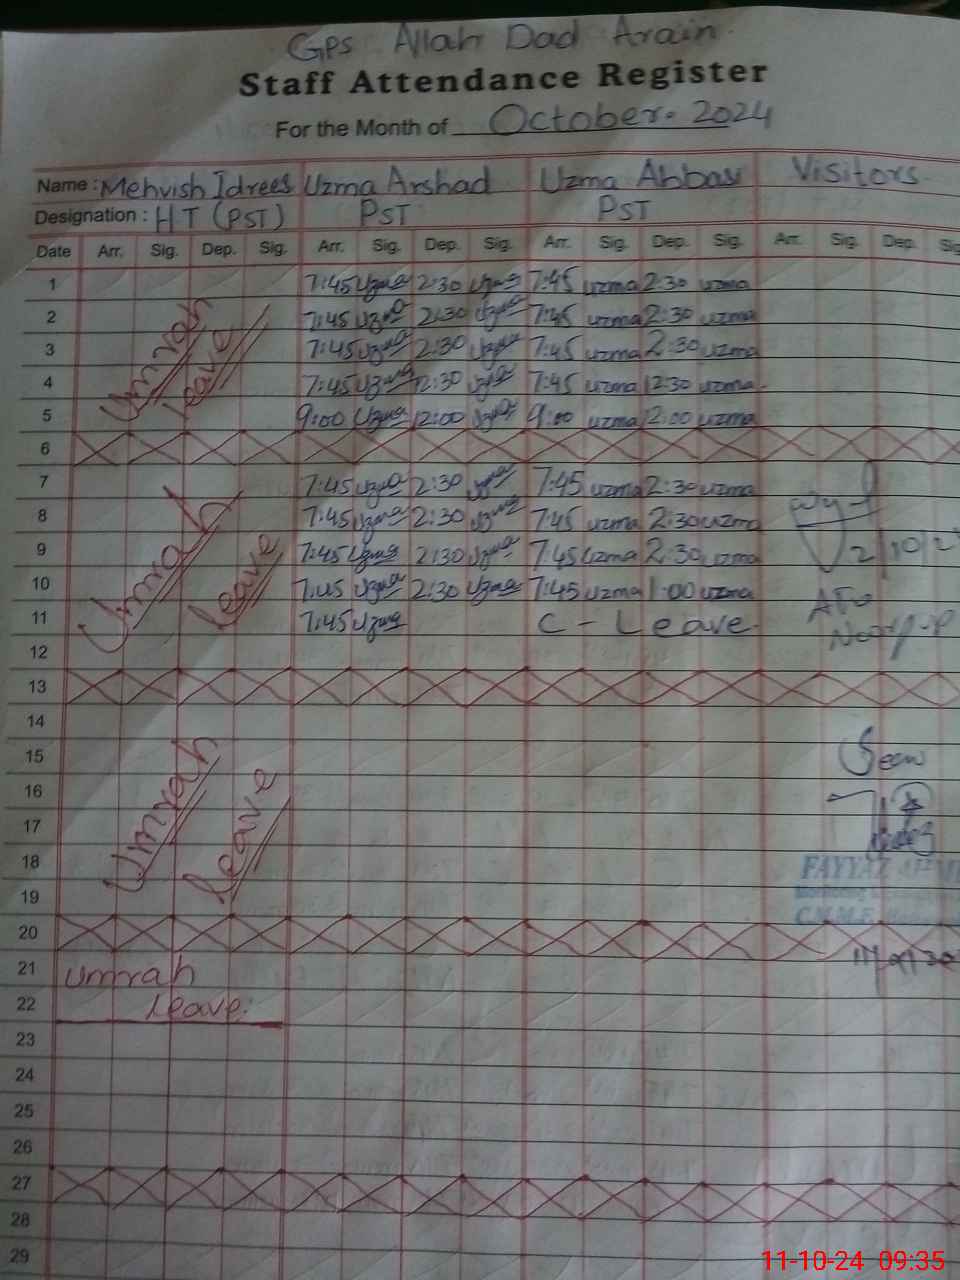 GPS Allah Dad Arain
Staff Attendance Register
For the Month of October. 2024
Name : Mehvish Idrees Uzma Arshad Uzma Abbasi Visitors
Designation : HT (PST) PST PST
Date Arr. Sig. Dep. Sig. Arr. Sig. Dep. Sig. Arr. Sig. Dep. Sig. Arr. Sig. Dep. Sig
1 7:45 Uzma 2:30 Uzma 7:45 uzma 2:30 uzma
2 7:45 Uzma 2:30 Uzma 7:45 uzma 2:30 uzma
3 7:45 Uzma 2:30 Uzma 7:45 uzma 2:30 uzma
4 7:45 Uzma 12:30 Uzma 7:45 uzma 12:30 uzma
5 9:00 Uzma 12:00 Uzma 9:00 uzma 12:00 uzma
Umrah
Leave
6
7 7:45 Uzma 2:30 Uzma 7:45 uzma 2:30 uzma
8 7:45 Uzma 2:30 Uzma 7:45 uzma 2:30 uzma
9 7:45 Uzma 2:30 Uzma 7:45 uzma 2:30 uzma
10 7:45 Uzma 2:30 Uzma 7:45 uzma 1:00 uzma
11 7:45 Uzma C - Leave
12
Umrah
Leave
2/10/2
13
14
15
16
17
18
19
Umrah
Leave
Seen
FAYYAZ
20
21 Umrah
22 Leave
23
24
25
26
27
28
29
11-10-24 09:35